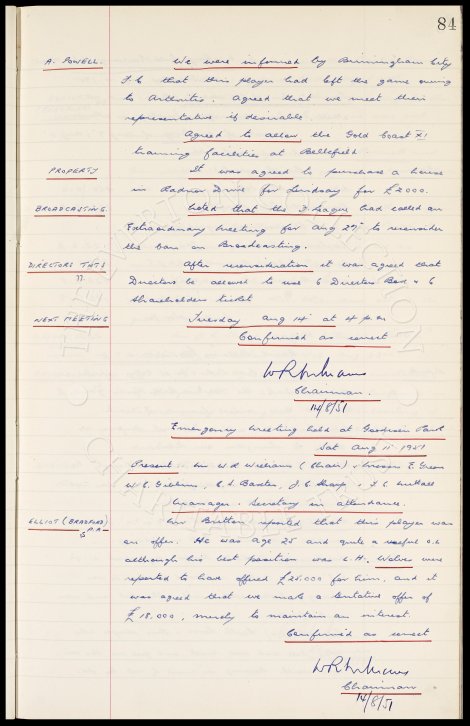 84
A. POWELL. We were informed by Birmingham City
F.C that this player had left the game owing
to Arthritis. Agreed that we meet their
representative if desirable.
Agreed to allow the Gold Coast XI
training facilities at Bellefield.
PROPERTY It was agreed to purchase a house
in Radnor Drive for Lindsay for £2000.
BROADCASTING. Noted that the F. League had called an
Extraordinary Meeting for Aug 27th to reconsider
the ban on Broadcasting.
DIRECTORS TKTS After reconsideration it was agreed that
Directors be allowed to use 6 Directors Box & 6
Shareholders tickets
NEXT MEETING Tuesday Aug 14th at 4 p.m.
Confirmed as correct
W R Williams
Chairman.
14/8/51
Emergency Meeting held at Goodison Park
Sat Aug 11 1951
Present Mr W. R. Williams (Chair) & Messrs E. Green
W. C. Gibbins, C. S. Baxter, J. C. Sharp &
Manager. Secretary in attendance.
ELLIOT (BRADFORD) P.A. Mr Britton reported that this player was
on offer. He was age 25 and quite a useful
although his best position was L.H. Wolves were
reported to have offered £25.000 for him, and it
was agreed that we make a tentative offer of
£18,000, merely to maintain an interest.
Confirmed as correct
W R Williams
Chairman
14/8/51